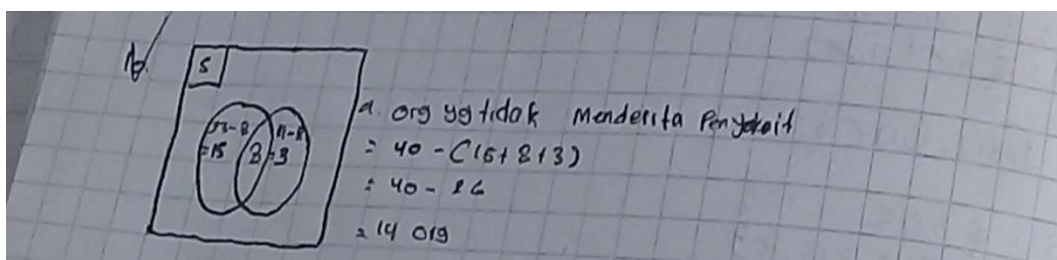 S
23-8
=15
8
11-8
=3
a. org yg tidak Menderita Penyakit
= 40 - (15+8+3)
= 40 - 26
= 14 org